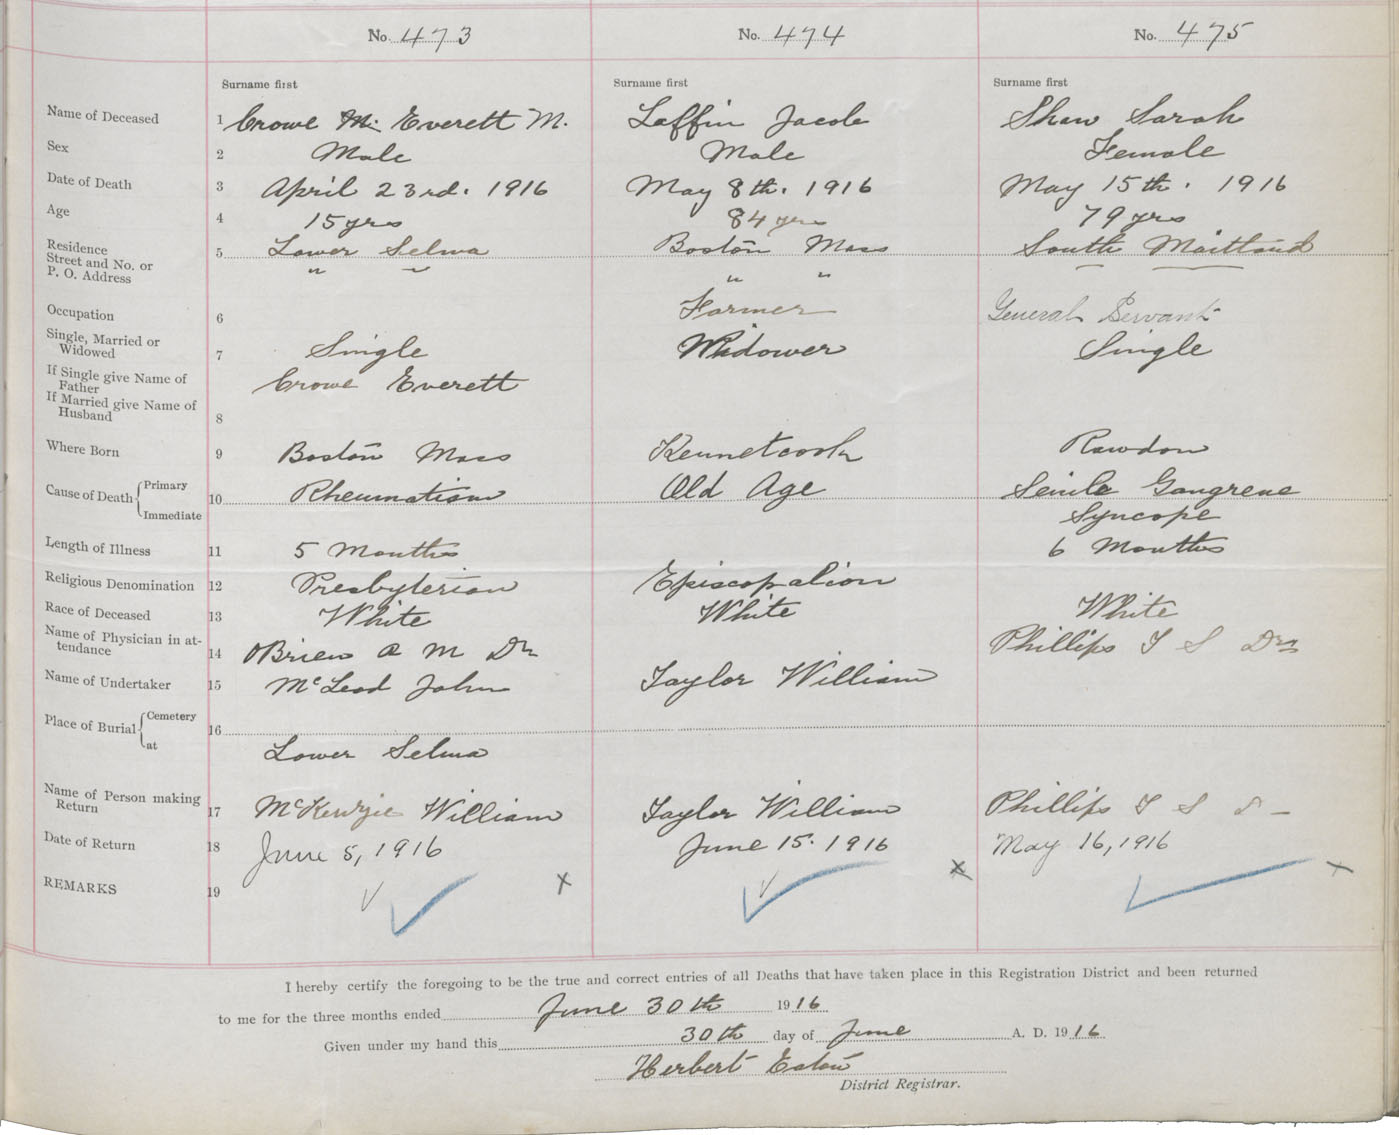 No. 473 No. 474 No. 475
Surname first Surname first Surname first
Name of Deceased 1 Crowe M. Everett M. Laffin Jacob Shaw Sarah
Sex 2 Male Male Female
Date of Death 3 April 23rd. 1916 May 8th. 1916 May 15th. 1916
Age 4 15 yrs 84 yrs 79 yrs
Residence 5 Lower Selma Boston Mass South Maitland
Street and No. or " " " "
P. O. Address
Occupation 6 Farmer General Servant
Single, Married or
Widowed 7 Single Widower Single
If Single give Name of
Father Crowe Everett
If Married give Name of
Husband 8
Where Born 9 Boston Mass Kennetcook Rawdon
Cause of Death { Primary 10 Rheumatism Old Age Senile Gangrene
Immediate Syncope
Length of Illness 11 5 Months 6 Months
Religious Denomination 12 Presbyterian Episcopalian
Race of Deceased 13 White White White
Name of Physician in at-
tendance 14 O'Brien A M Dr Phillips T S Dr
Name of Undertaker 15 McLeod John Taylor William
Place of Burial { Cemetery 16
at Lower Selma
Name of Person making
Return 17 McKenzie William Taylor William Phillips T S
Date of Return 18 June 5, 1916 June 15. 1916 May 16, 1916
REMARKS 19
I hereby certify the foregoing to be the true and correct entries of all Deaths that have taken place in this Registration District and been returned
to me for the three months ended June 30th 1916
Given under my hand this 30th day of June A. D. 1916
Herbert Eaton
District Registrar.